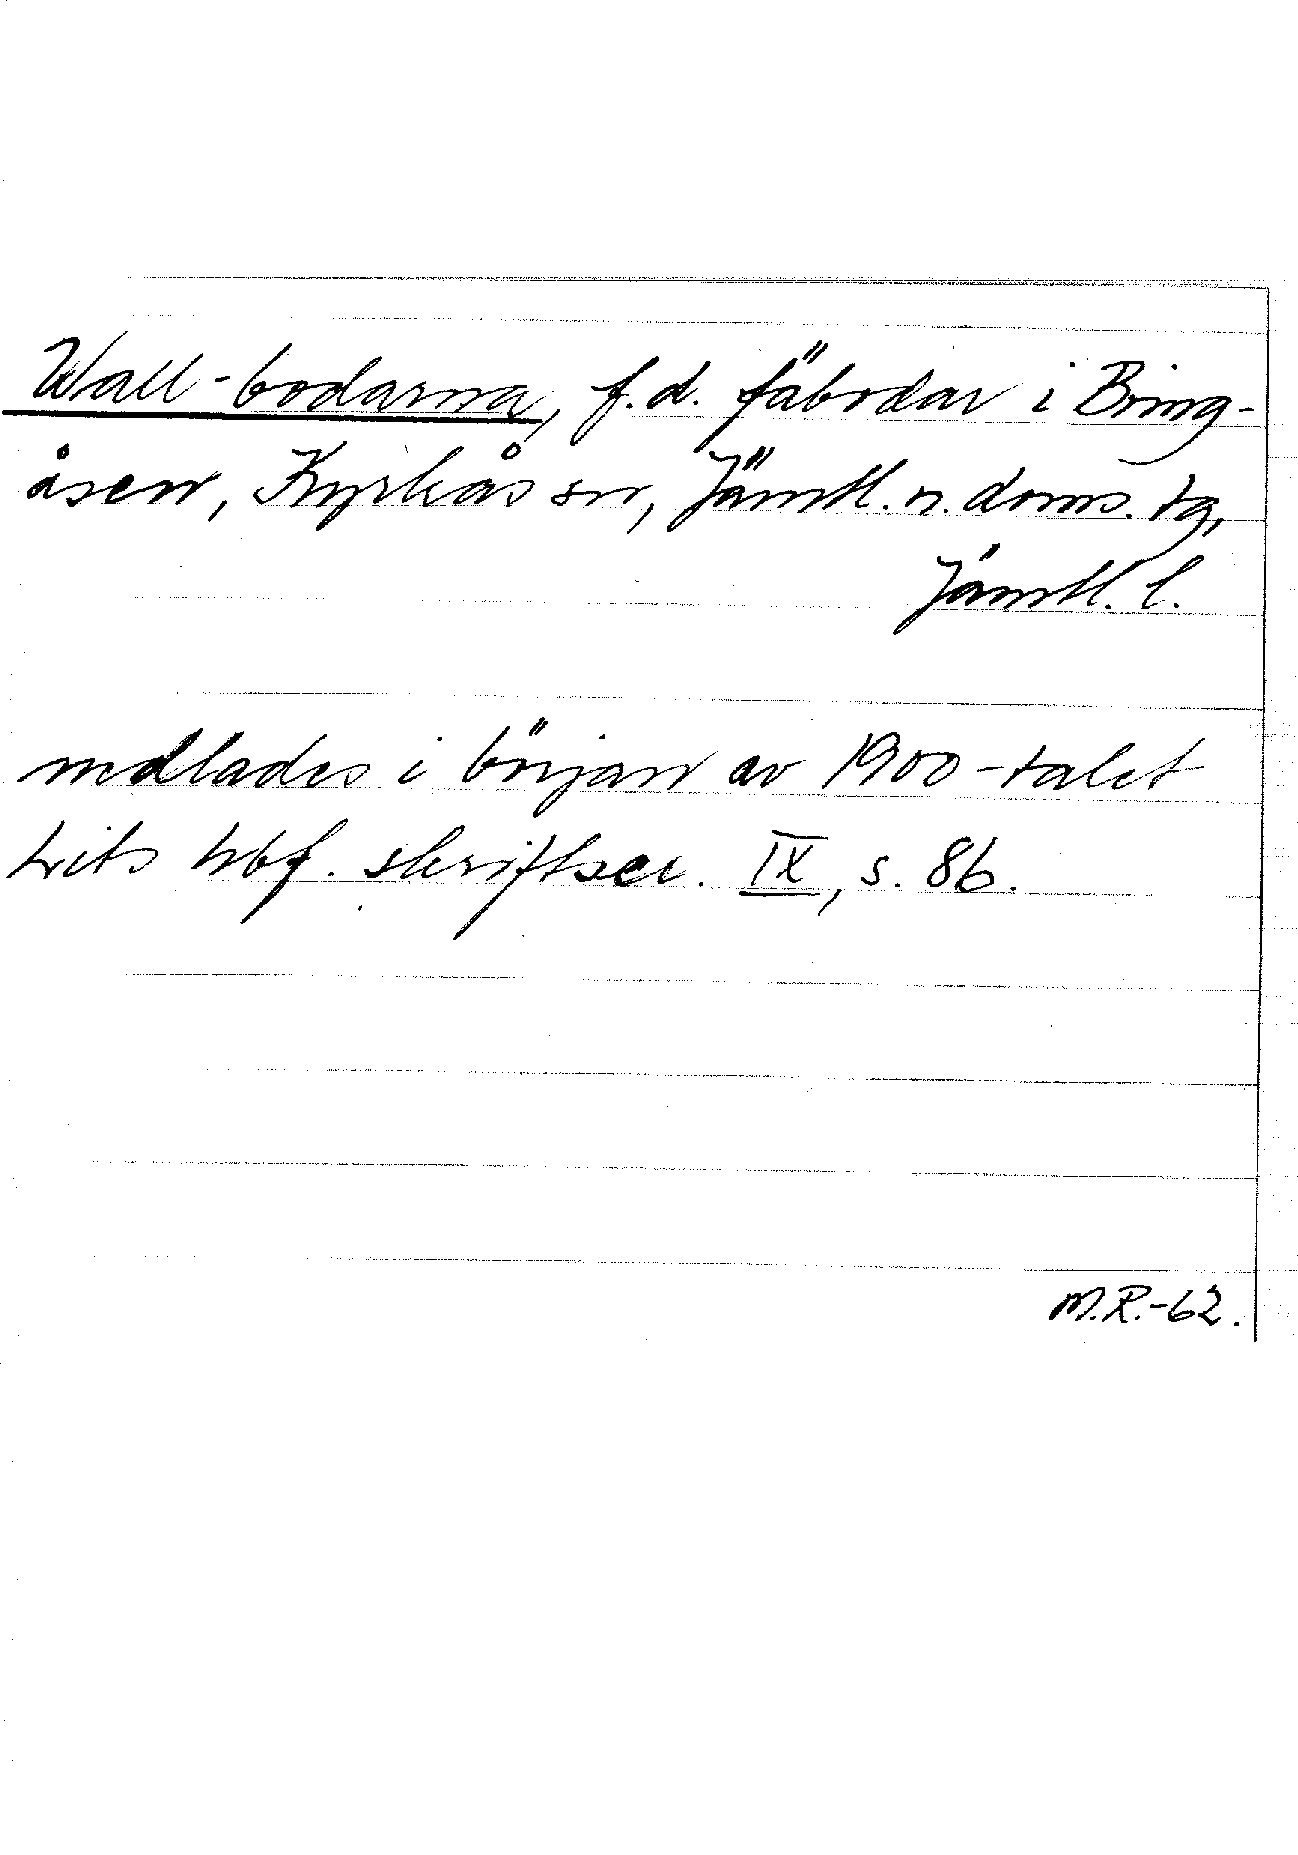 Wall-bodarna, f.d. fäbodar i Bring-
åsen, Kyrkås sn, Jämtl. n. doms. tg,
Jämtl. l.
nedlades i början av 1900-talet
Lits hbf. skriftser. IX, s. 86.
M.R.-62.